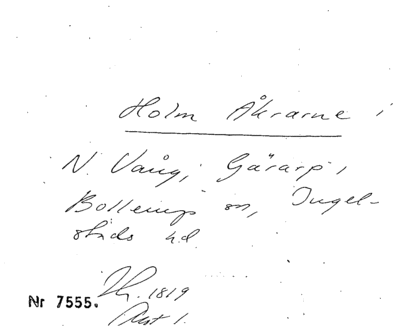 Holm Åkrarne i
N. Vång, Gärarp,
Bollerup sn, Ingel-
stads hd.
1819
Nr 7555.
Akt 1.